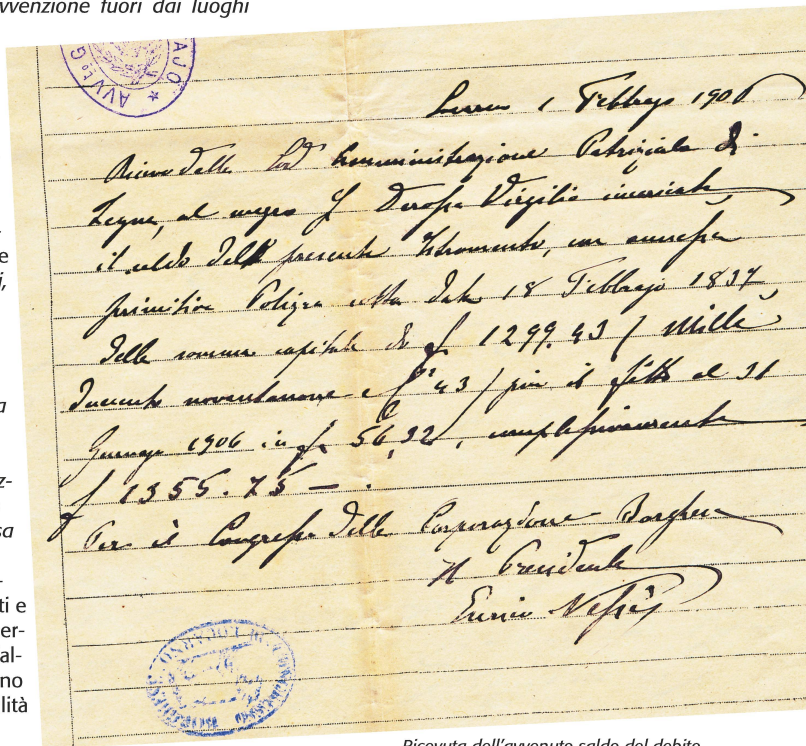 vvenzione fuori dai luoghi
AVV.to G
AJO
1 Febbrajo 1906
Ricevo dalla Lod. Amministrazione Patriziale di
al mezzo Virgilio
il saldo del presente Istromento, con annessa
primitiva Polizza data 18 Febbrajo 1837,
della somma capitale di f 1299.43 / Mille
duecento novantanove e f 43 / più il fitto al 31
Gennajo 1906 in f 56,32, complessivamente
f 1355.75 — .
Per il Congresso della Corporazione Borghese
Il Presidente
e
i,
a
z-
sa
ti e
er-
al-
no
lità
Ricevuta dell'avvenuto saldo del debito